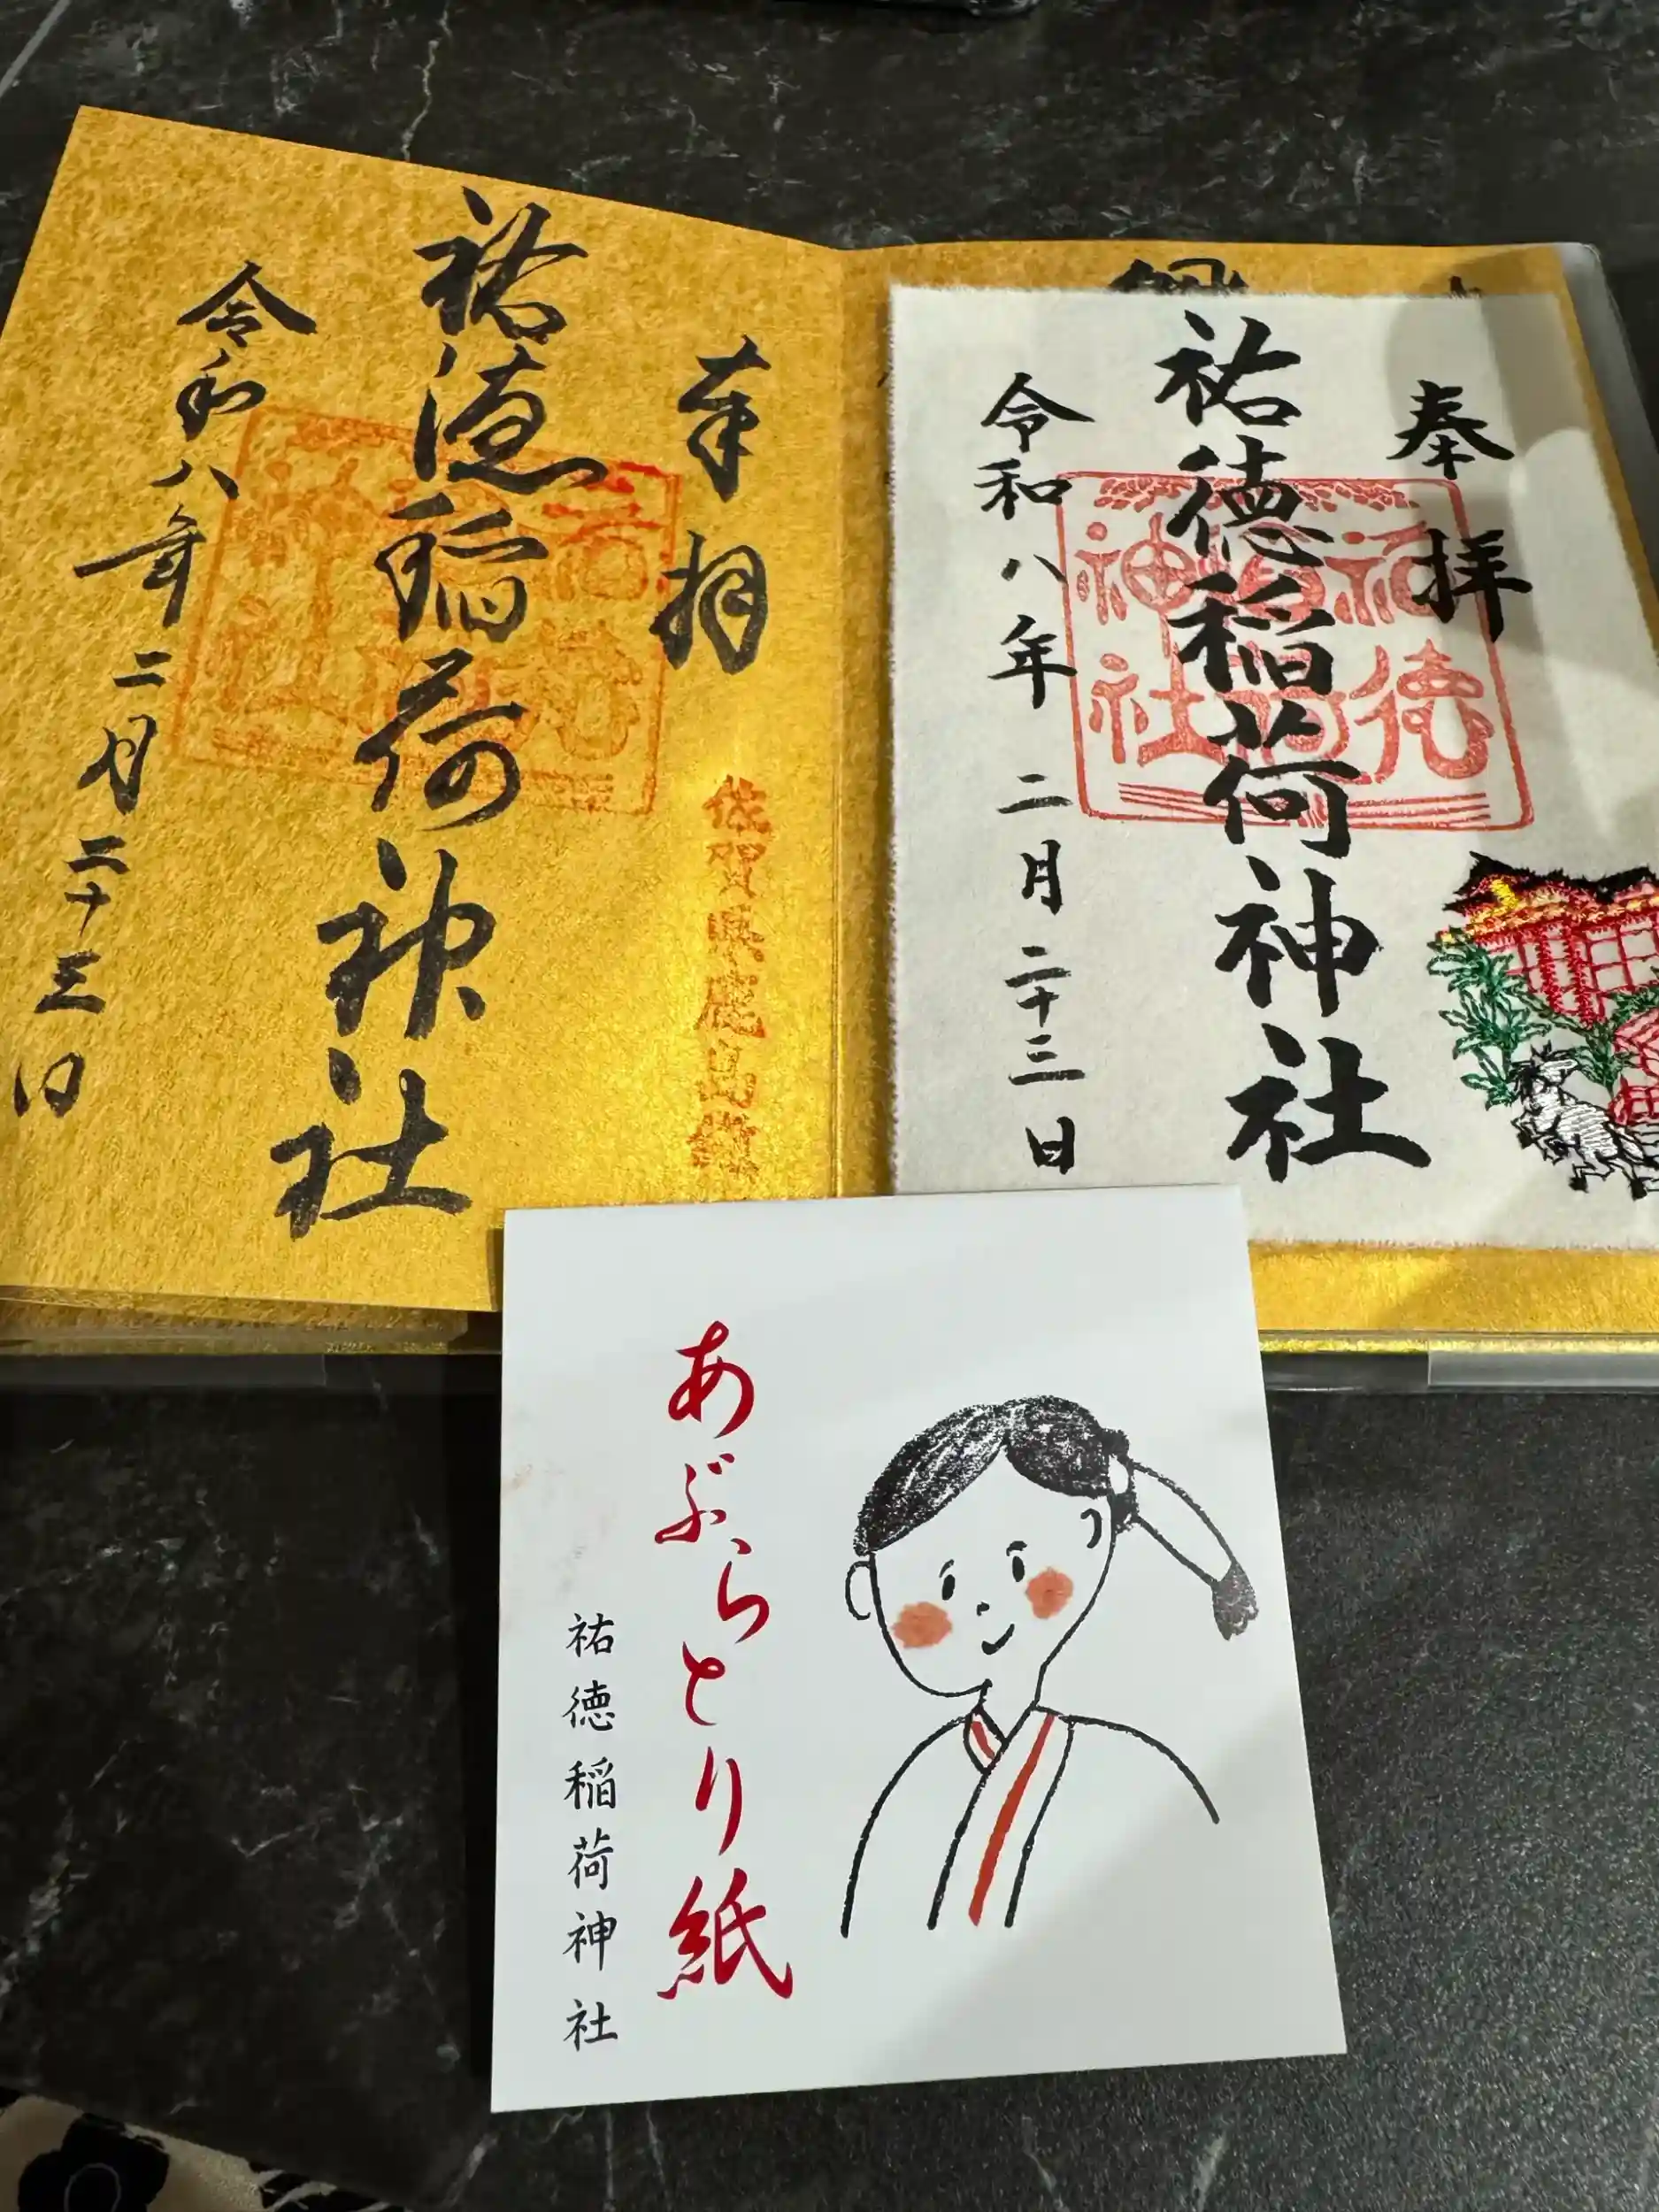 奉拝
佐賀県鹿島鎮
祐徳稲荷神社
令和八年二月二十三日
奉拝
祐徳稲荷神社
令和八年二月二十三日
祐徳稲荷神社
あぶらとり紙
祐徳稲荷神社